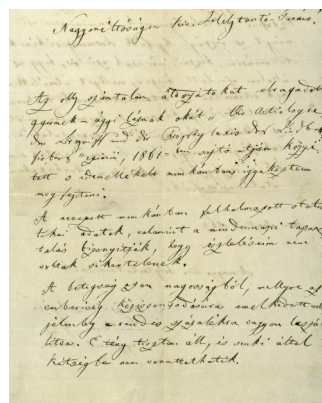 Nagyméltóságu Kir. Helytartó Tanács!
Az oly számtalan áldozatokat elragadott
gyermek-ágyi láznak okát „die Aetiologie
der Begriff und die Prophylaxis des Kindbett-
fiebers" czimü, 1861-ben sajtó utján közzé
tett s idemellékelt munkámban iparkodtam
megfejteni.
A nevezett munkámban felhalmozott statis-
tikai adatok, valamint a mindennapi tapasz-
talás bizonyitják, hogy
voltak sikertelenek.
A betegség azon nagyságból, mellyre az
emberiség emelkedett
jelenleg a rendes százalékra vagyon leszál-
litva. E tény tisztán áll, és senki által
kétségbe nem vonathatik.